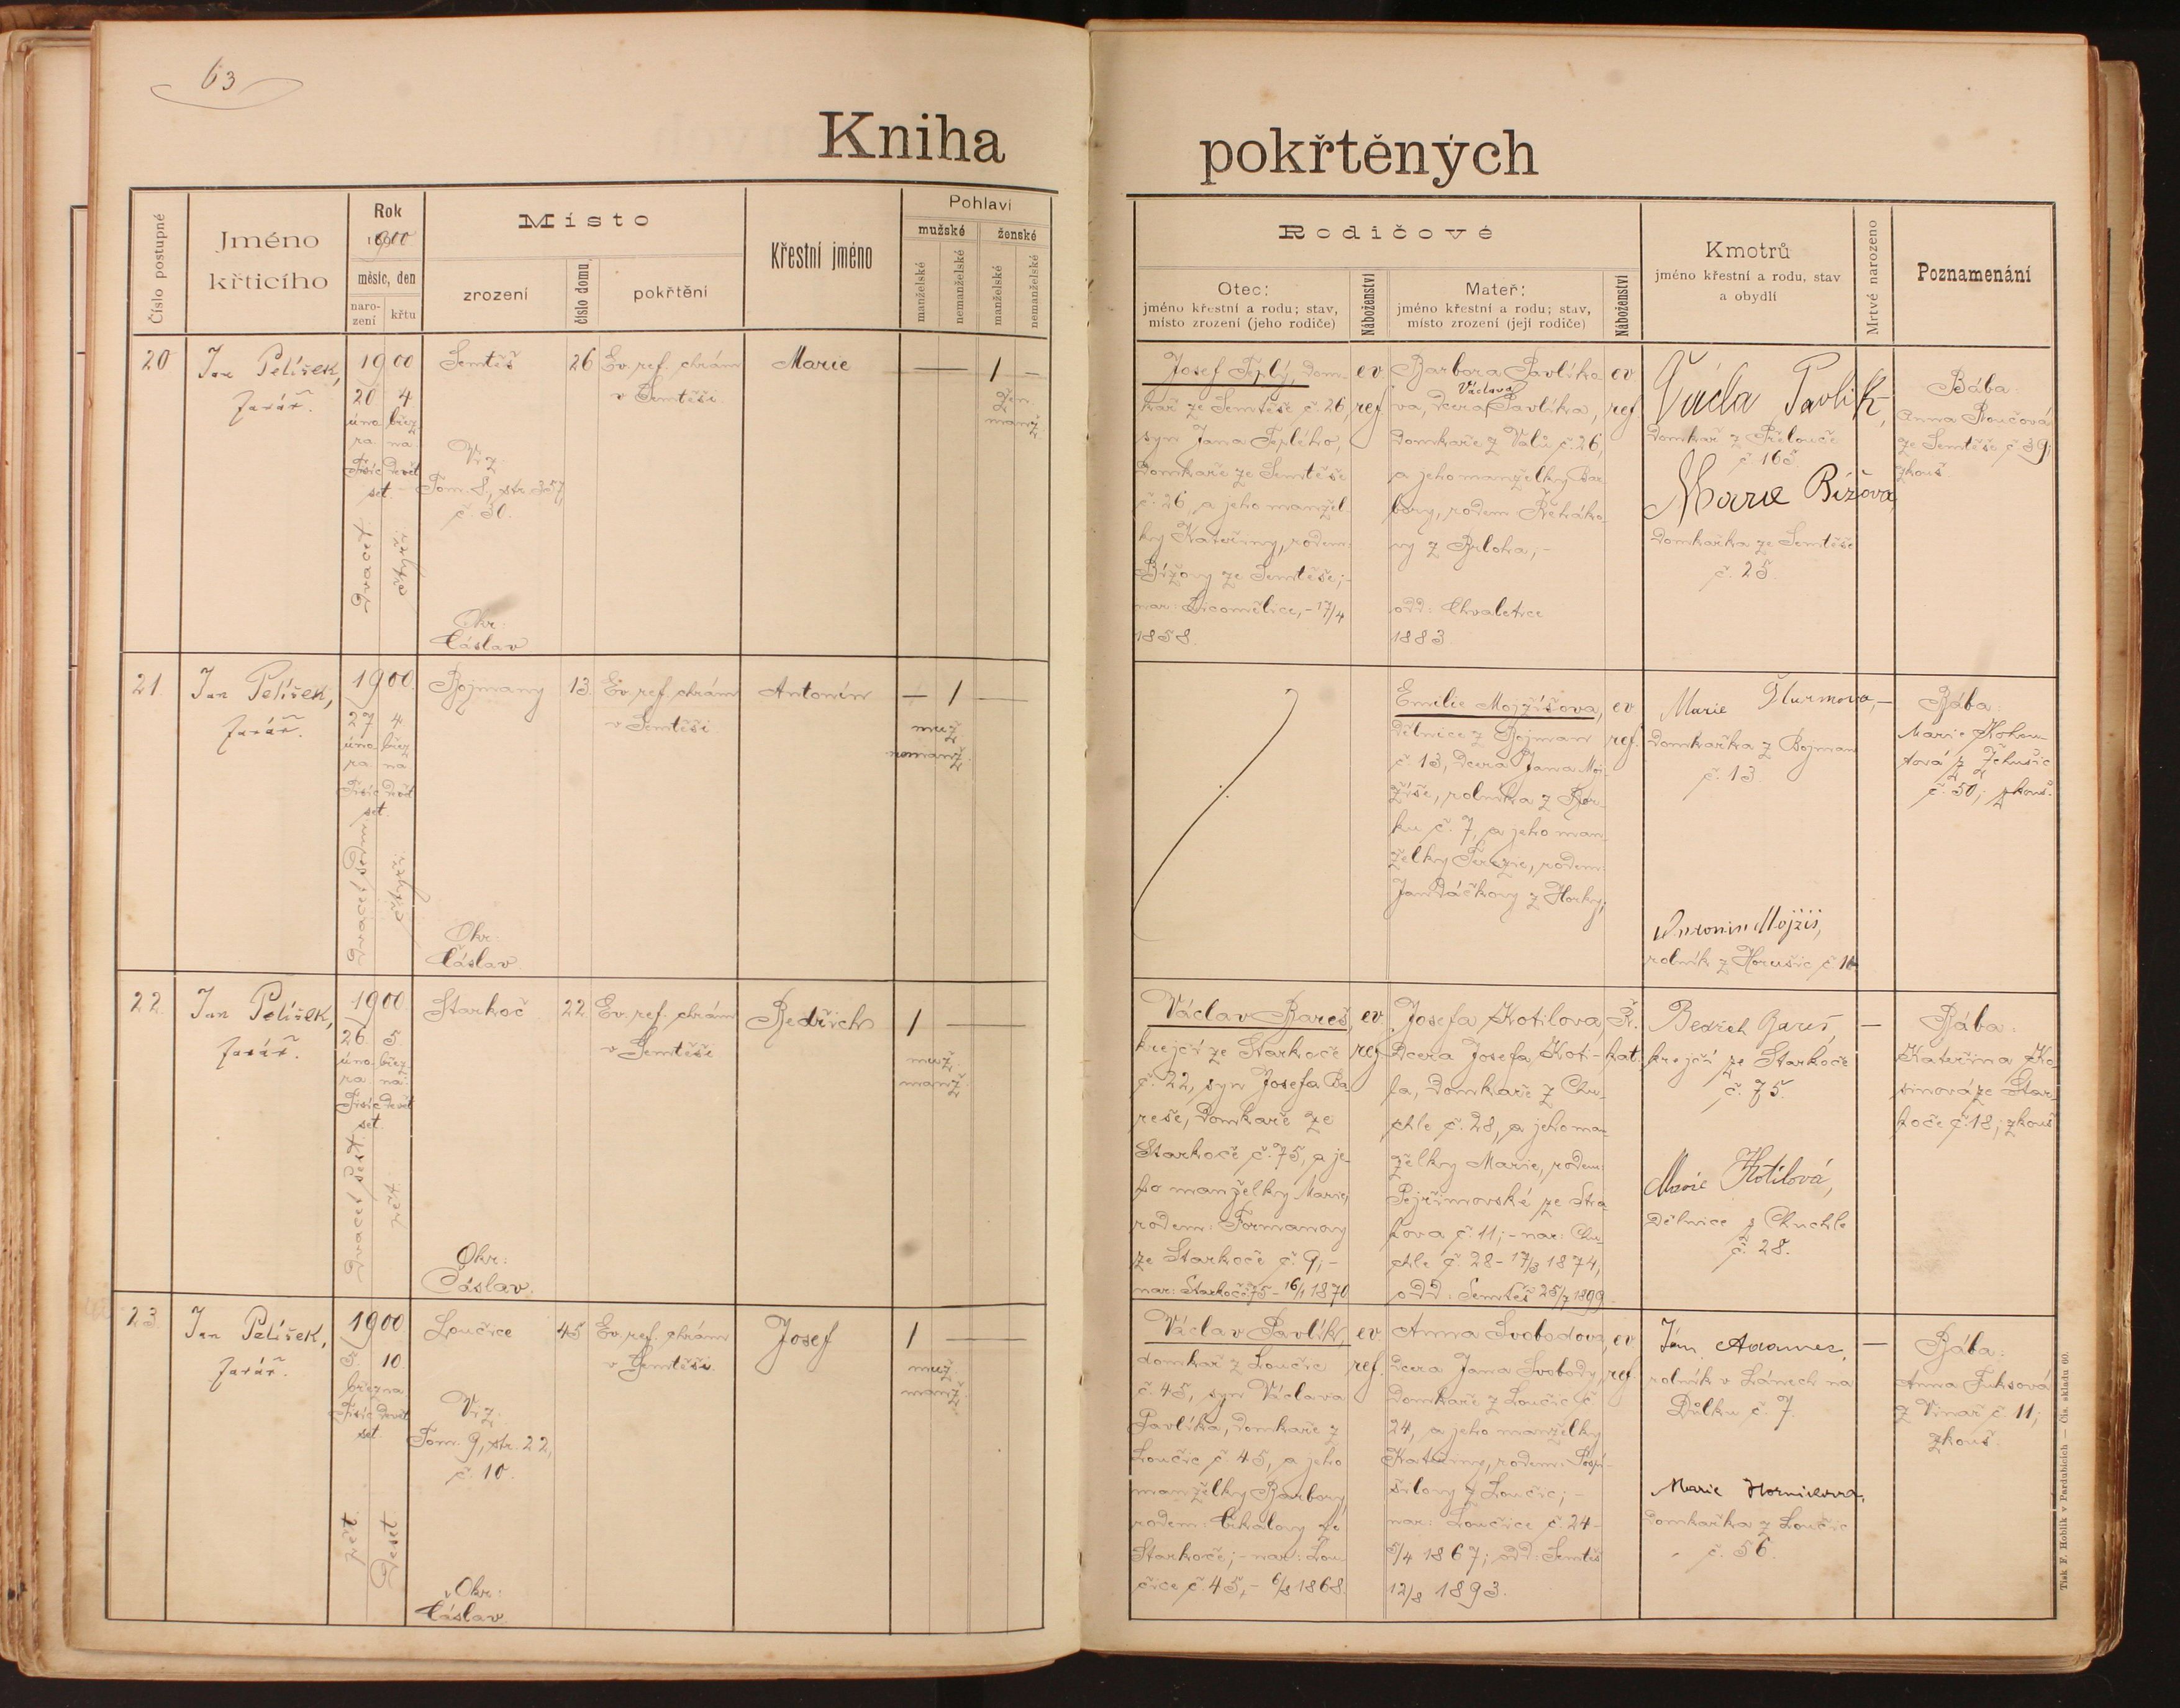 63
Kniha pokřtěných
Číslo postupné
Jméno křticího
Rok
1900
měsíc, den
naro-
zení
křtu
Místo
zrození
číslo domu
pokřtění
Křestní jméno
Pohlaví
mužské
ženské
manželské
nemanželské
manželské
nemanželské
Rodičové
Otec:
jméno křestní a rodu; stav,
místo zrození (jeho rodiče)
Náboženství
Mateř:
jméno křestní a rodu; stav,
místo zrození (její rodiče)
Náboženství
Kmotrů
jméno křestní a rodu, stav
a obydlí
Mrtvě narozeno
Poznamenání
20
Jan Pelíšek,
farář.
1900
20 4
úno- břez-
ra na
Tisíc devět
set.
Dvacet
čtyři
Semtěš
Viz
Tom. 8, str. 357,
č. 30.
Okr:
Čáslav
26
Ev. ref. chrám
v Semtěši.
Marie
1
žen.
manž.
Josef Teplý, dom-
kář ze Semtěše č. 26,
syn Jana Teplého,
domkaře ze Semtěše
č. 26, a jeho manžel-
ky Kateřiny, rodem:
Bížovy ze Semtěše;-
nar: Licomělice, - 17/4
1858.
ev.
ref
Barbora Pavlíko-
va, dcera Václava Pavlíka,
domkaře z Valů č. 26,
a jeho manželky Bar-
bory, rodem Řeháko-
vy z Brloha, -
odd: Chvaletice
1883.
ev.
ref
Václa Pavlik,
domkář z Přelouče
č. 165.
Marie Bížova,
domkařka ze Semtěše
č. 25.
Bába:
Anna Součová
ze Semtěše č. 39;
zkouš
21.
Jan Pelíšek,
farář.
1900.
27 4
úno- břez-
ra na
Tisíc devět
set.
Dvacet sedm
čtyři
Bojmany
Okr:
Čáslav
13.
Ev. ref. chrám
v Semtěši
Antonín
1
muž.
nemanž.
Emilie Mojžíšova,
dělnice z Bojman
č. 13, dcera Jana Moj-
žíše, rolníka z Bor-
ku č. 7, a jeho man-
želky Terezie, rodem:
Jandáčkovy z Horky;
ev.
ref.
Marie Šturmova, -
domkařka z Bojman
č. 13.
Antonin Mojžiš,
rolník z Horušic č. 10
Bába:
Marie Kohou-
tová z Žehušic
č. 50; zkouš.
22.
Jan Pelíšek,
farář.
1900
26. 5
úno- břez-
ra na.
Tisíc devět
set.
Dvacet šest.
pět.
Starkoč
Okr:
Čáslav.
22
Ev. ref. chrám
v Semtěši
Bedřich
1
muž.
manž.
Václav Bareš,
krejčí ze Starkoče
č. 22, syn Josefa Ba-
reše, domkaře ze
Starkoče č. 75, a je-
ho manželky Marie,
rodem: Formanovy
ze Starkoče č. 9; -
nar: Starkoč č. 75 - 16/1 1870
ev.
ref
Josefa Kotilova,
dcera Josefa Koti-
la, domkaře z Chu-
chle č. 28, a jeho ma-
želky Marie, rodem:
Pejřimovské ze Stra-
kova č. 11; - nar: Chu-
chle č. 28 - 17/3 1874,
odd: Semtěš 25/7 1899
Ř.
kat.
Bedřch Bareš,
krejčí ze Starkoče
č. 75.
Marie Kotilová,
dělnice z Chuchle
č. 28.
Bába:
Kateřina Ko-
sinová ze Star-
koče č. 18; zkouš
23.
Jan Pelíšek,
farář.
1900
5. 10.
března
Tisíc devět
set.
pět.
Deset.
Loučice
Viz.
Tom. 9, str. 22,
č. 10.
Okr:
Čáslav.
45
Ev. ref. chrám
v Semtěši.
Josef
1
muž.
manž.
Václav Pavlík,
domkář z Loučic
č. 45, syn Václava
Pavlíka, domkaře z
Loučic č. 45, a jeho
manželky Barbory,
rodem: Cihalovy ze
Starkoče; - nar: Lou-
čice č. 45, - 6/8 1868.
ev.
ref.
Anna Svobodova,
dcera Jana Svobody,
domkaře z Loučic č.
24, a jeho manželky
Kateřiny, rodem: Pospí-
šilovy z Loučic; -
nar: Loučice č. 24 -
5/4 1867; odd: Semtěš
12/8 1893.
ev.
ref
Ján Adamec,
rolník v Lánech na
Důlku č. 7.
Marie Hornickova,
domkařka z Loučic
č. 56.
Bába:
Anna Fuksová
z Vinař č. 11;
zkouš.
Tisk F. Hoblík v Pardubicích — Čís. skladu 60.